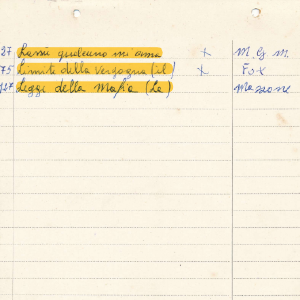 27 Lassù qualcuno mi ama x M. G. M.
75 Limite della Vergogna (il) x Fox
127 Leggi della Mafia (La) Mazzone